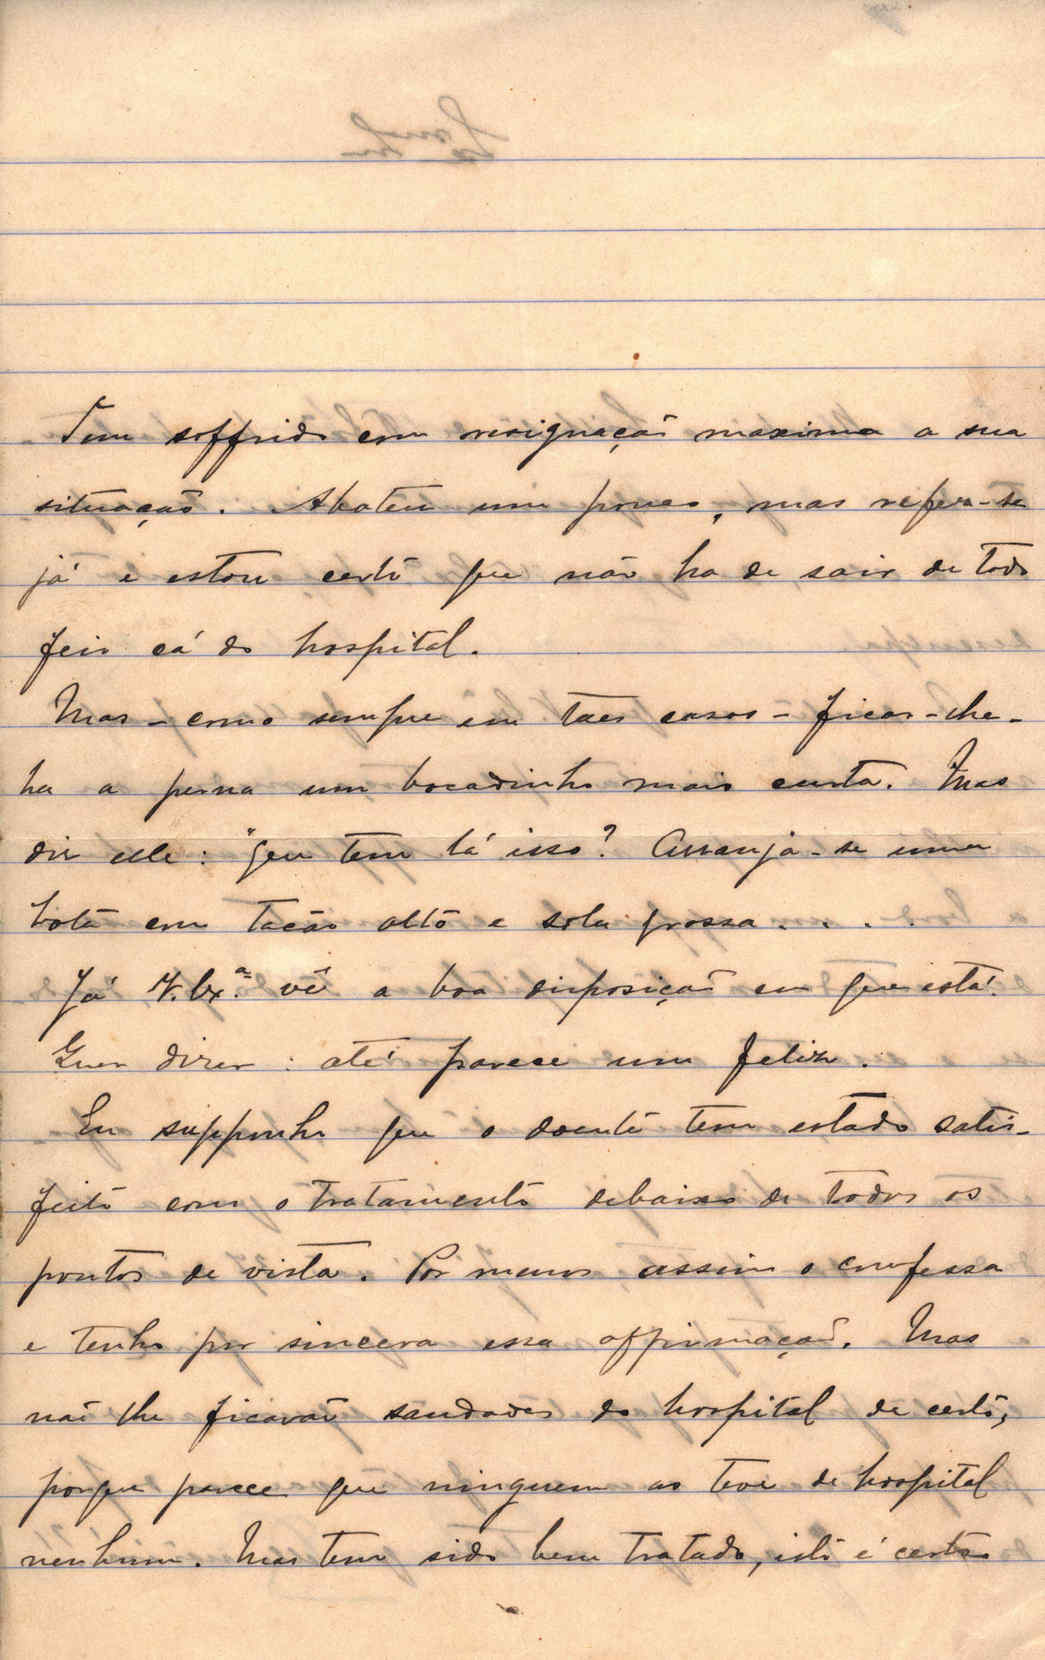 Tem soffrido com resignação maxima a sua
situação. Abateu um pouco, mas refez-se
já e estou certo que não ha de sair de todo
feio cá do hospital.
Mas - como sempre em taes casos - ficar-lhe-
ha a perna um bocadinho mais curta. Mas
diz elle: "que tem lá isso? Arranja-se uma
bota com tacão alto e sola grossa....
Já V. Ex.ª vê a boa disposição em que está.
Quer dizer: até parece um feliz.
Eu supponho que o doente tem estado satis-
feito com o tratamento debaixo de todos os
pontos de vista. Por menos assim o confessa
e tenho por sincera essa affirmação. Mas
não lhe ficarão saudades do hospital de certo,
porque parece que ninguem as teve de hospital
nenhum. Mas tem sido bem tratado, isto é certo